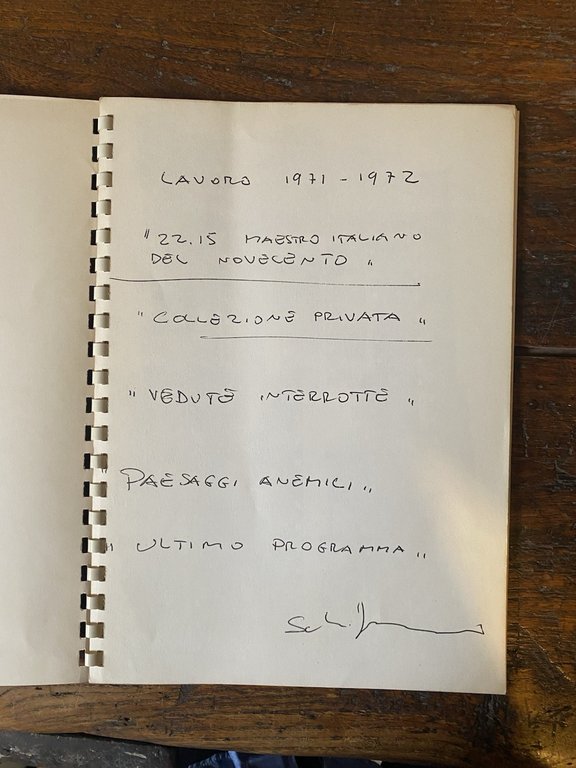 LAVORO 1971 - 1972
"22.15 MAESTRO ITALIANO
DEL NOVECENTO"
"COLLEZIONE PRIVATA"
"VEDUTE INTERROTTE"
"PAESAGGI ANEMICI"
"ULTIMO PROGRAMMA"